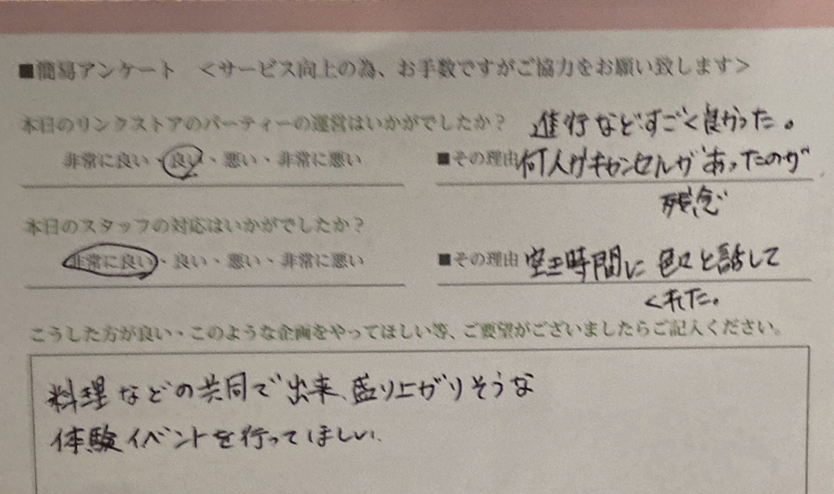 ■簡易アンケート ＜サービス向上の為、お手数ですがご協力をお願い致します＞
本日のリンクストアのパーティーの運営はいかがでしたか？ 進行などすごく良かった。
非常に良い・良い・悪い・非常に悪い ■その理由 何人かキャンセルがあったのが
残念
本日のスタッフの対応はいかがでしたか？
非常に良い・良い・悪い・非常に悪い ■その理由 空き時間に色々と話して
くれた。
こうした方が良い・このような企画をやってほしい等、ご要望がございましたらご記入ください。
料理などの共同で出来、盛り上がりそうな
体験イベントを行ってほしい